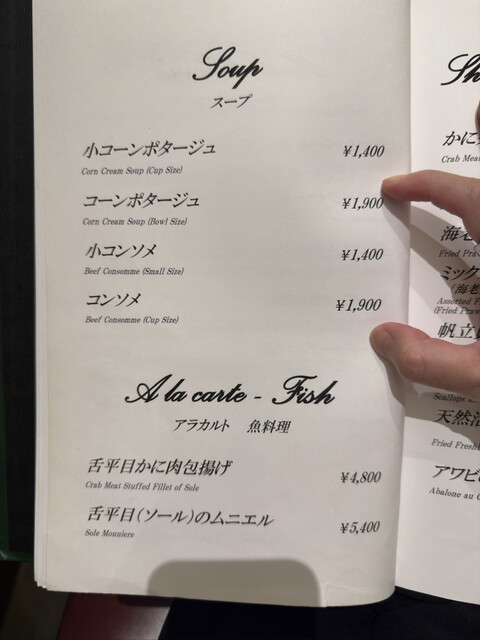 Soup
スープ
小コーンポタージュ ¥1,400
Corn Cream Soup (Cup Size)
コーンポタージュ ¥1,900
Corn Cream Soup (Bowl Size)
小コンソメ ¥1,400
Beef Consomme (Small Size)
コンソメ ¥1,900
Beef Consomme (Cup Size)
A la carte - Fish
アラカルト 魚料理
舌平目かに肉包揚げ ¥4,800
Crab Meat Stuffed Fillet of Sole
舌平目(ソール)のムニエル ¥5,400
Sole Mouniere
Sh
かに
Crab Mea
海老
Fried Pra
ミック
(海老
Assorted F
(Fried Praw
帆立
Scallops
天然活
Fried Fresh
アワビの
Abalone au G